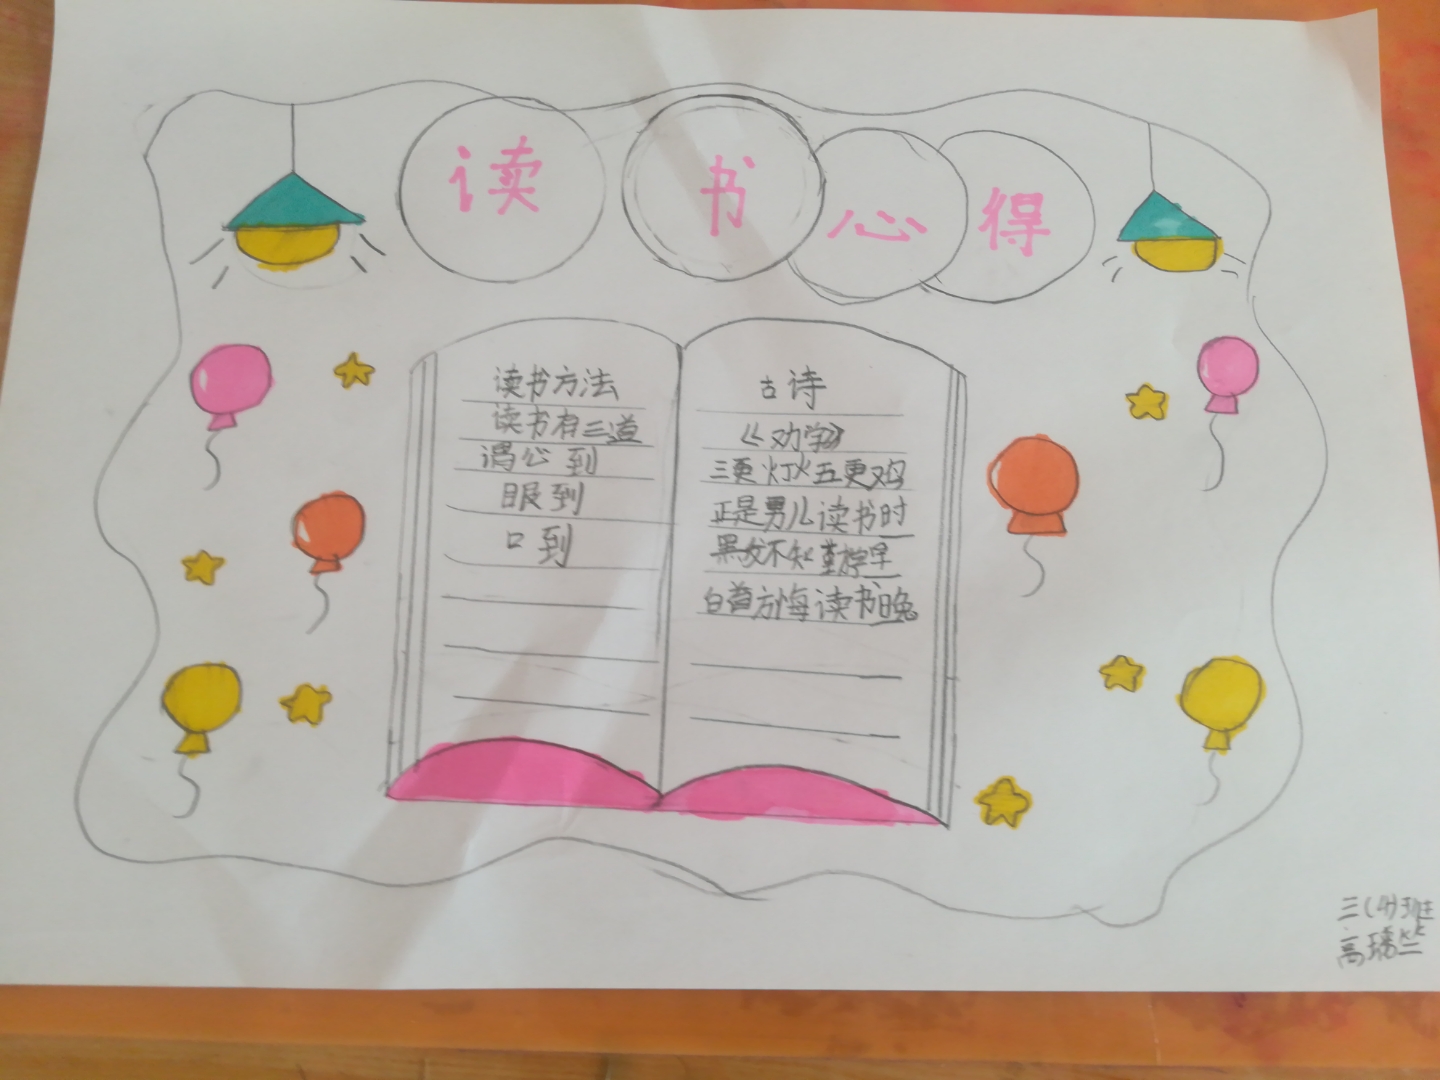 读书心得
读书方法
读书有三道
谓心到
眼到
口到
古诗
《劝学》
三更灯火五更鸡
正是男儿读书时
黑发不知勤学早
白首方悔读书晚
三(4)班
高